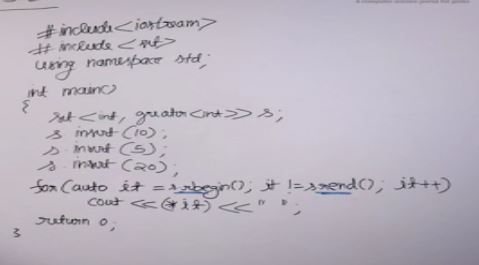 A computer science portal for geeks
#include<iostream>
#include <set>
using namespace std;
int main()
{
set <int, greater<int>> s;
s. insert (10);
s. insert (5);
s. insert (20);
for(auto it = s.rbegin(); it != s.rend(); it++)
cout << (*it) << " ";
return 0;
}